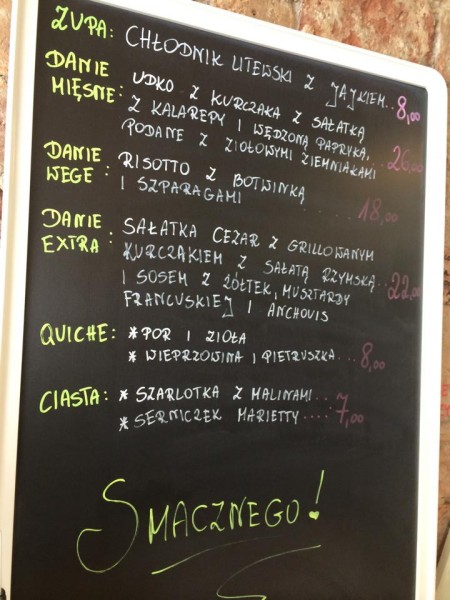 ZUPA: CHŁODNIK LITEWSKI Z JAJKIEM.. 8,00
DANIE MIĘSNE: UDKO Z KURCZAKA Z SAŁATKĄ
Z KALAREPY I WĘDZONĄ PAPRYKĄ,
PODANE Z ZIOŁOWYMI ZIEMNIAKAMI 26,00
DANIE WEGE: RISOTTO Z BOTWINKĄ
I SZPARAGAMI .... 18,00
DANIE EXTRA: SAŁATKA CEZAR Z GRILLOWANYM
KURCZAKIEM Z SAŁATĄ RZYMSKĄ
I SOSEM Z ŻÓŁTEK, MUSZTARDY .. 22,00
FRANCUSKIEJ I ANCHOVIS
QUICHE: * POR I ZIOŁA
* WIEPRZOWINA I PIETRUSZKA... 8,00
CIASTA: * SZARLOTKA Z MALINAMI..
* SERNICZEK MARIETTY .... 7,00
SMACZNEGO!